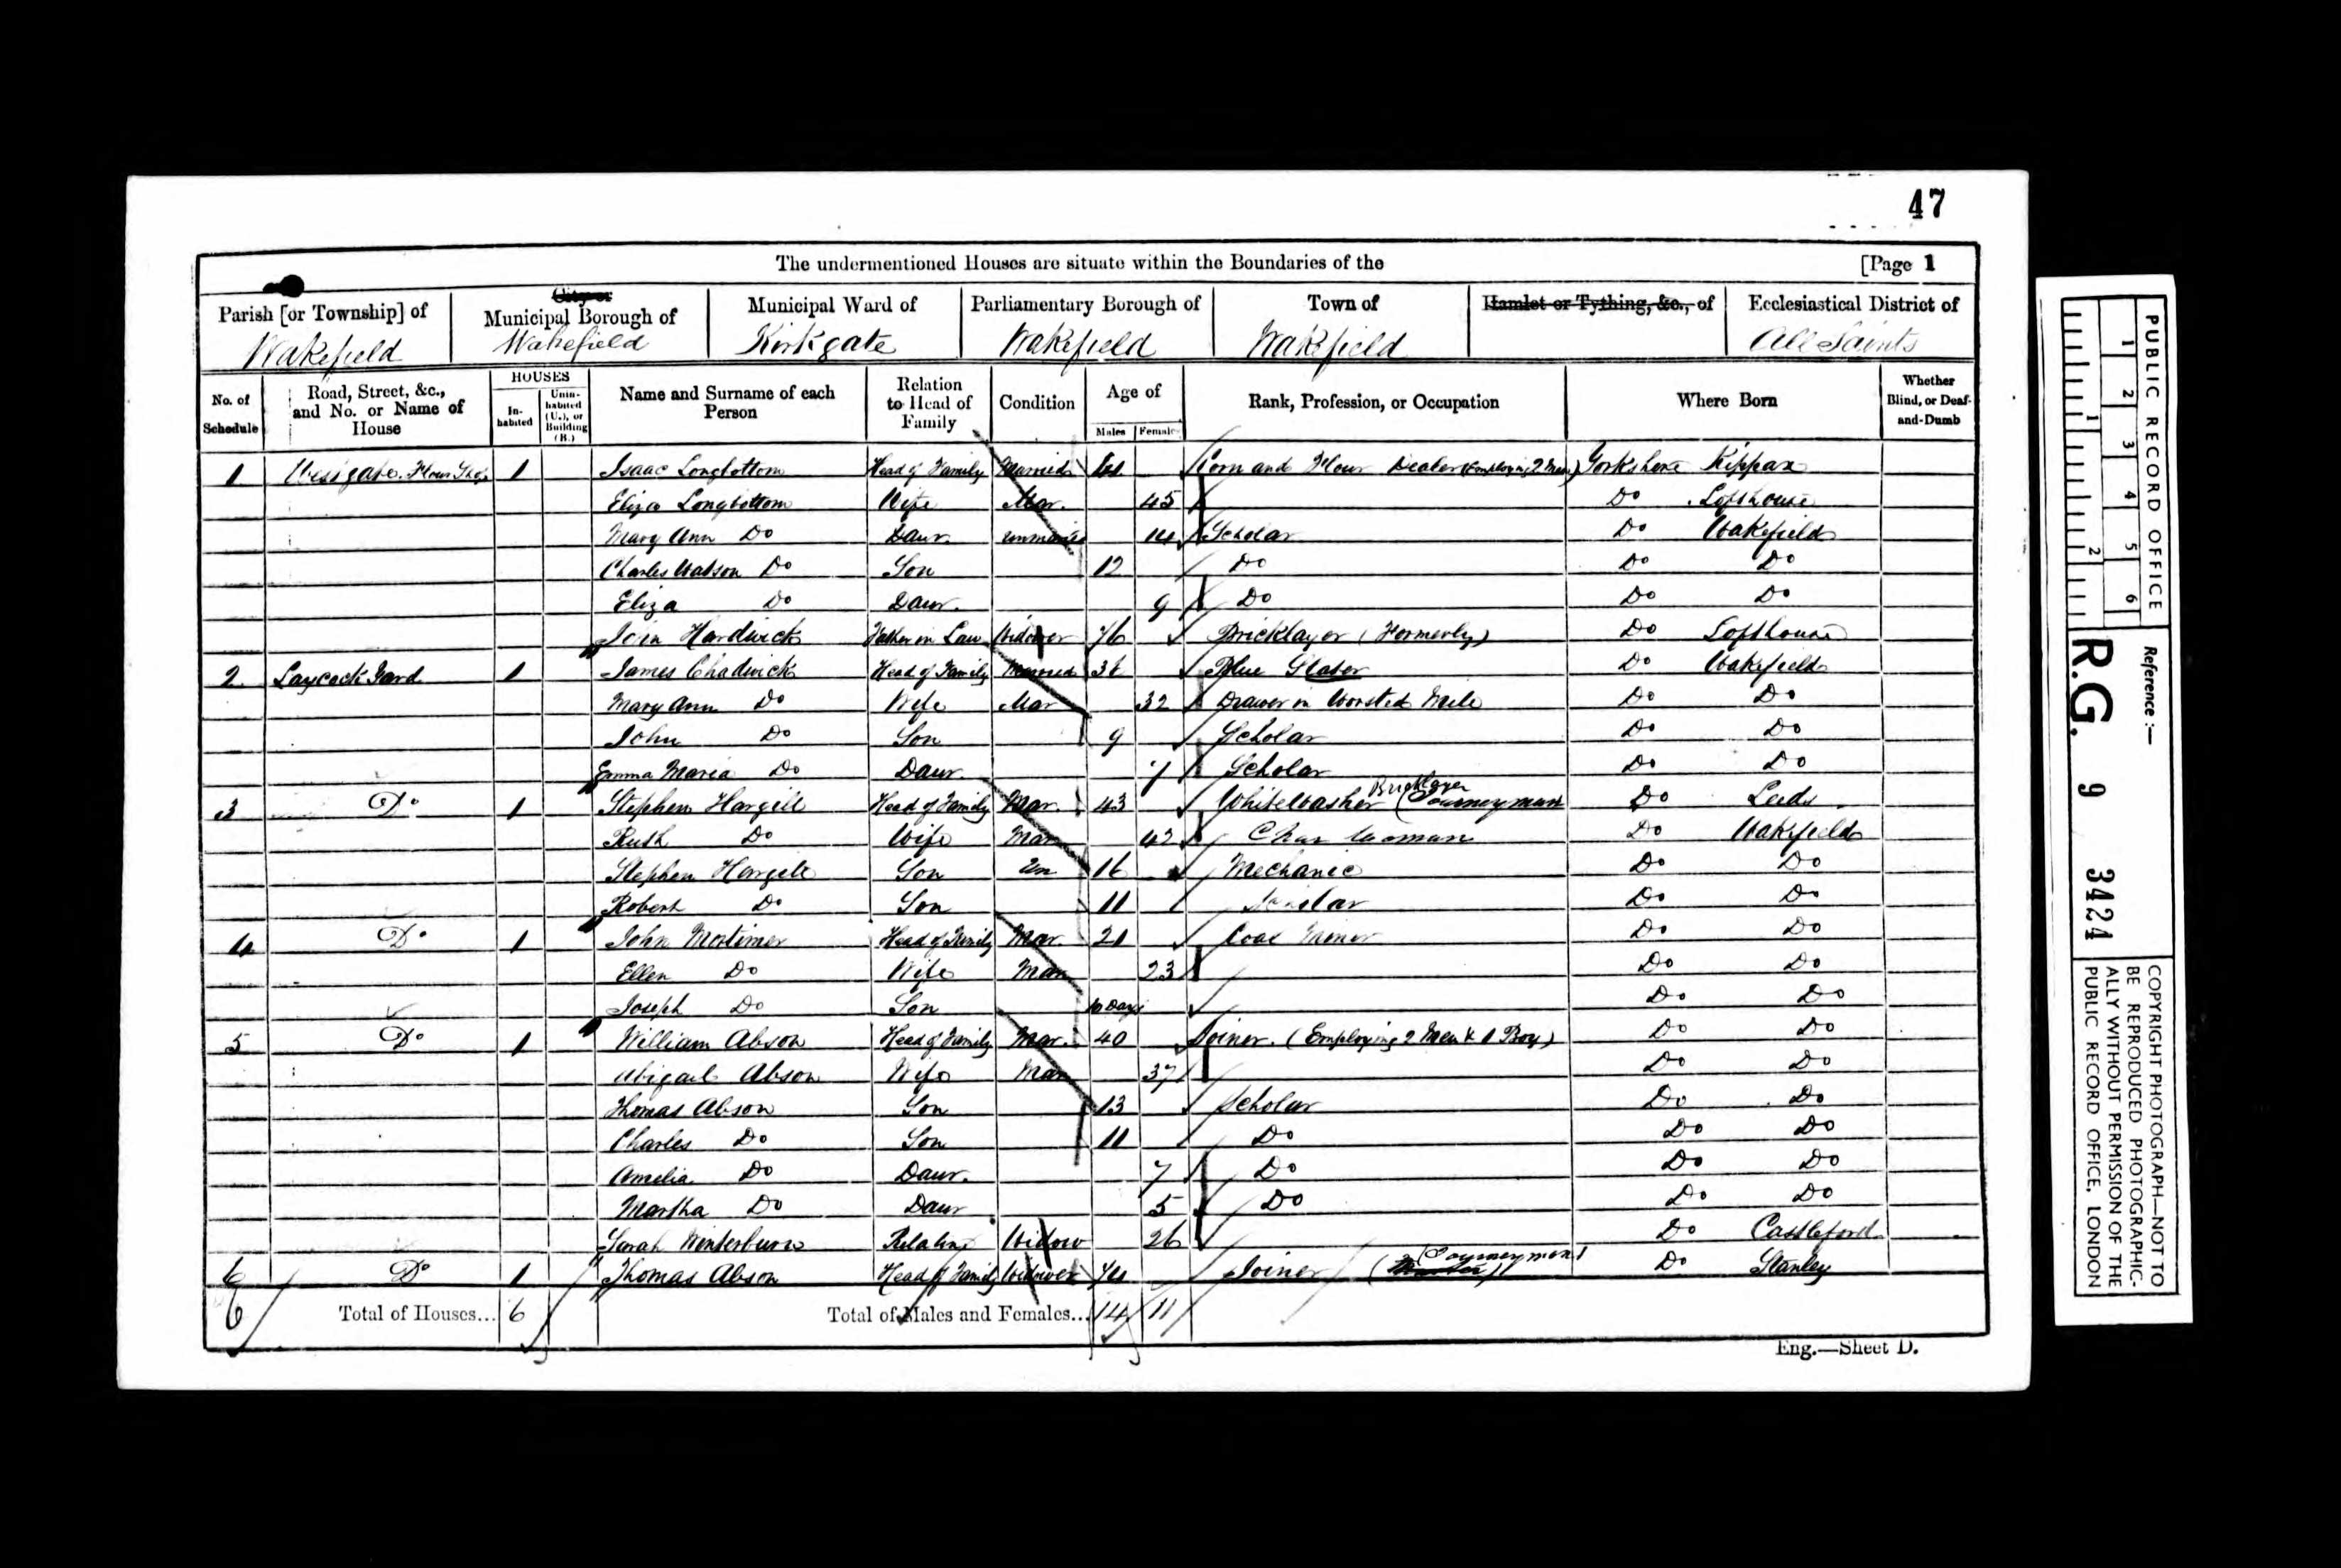 47
The undermentioned Houses are situate within the Boundaries of the [Page 1
Parish [or Township] of Wakefield
City or Municipal Borough of Wakefield
Municipal Ward of Kirkgate
Parliamentary Borough of Wakefield
Town of Wakefield
Hamlet or Tything, &c., of
Ecclesiastical District of All Saints
No. of Schedule
Road, Street, &c., and No. or Name of House
HOUSES
In-habited
Unin-habited (U.), or Building (B.)
Name and Surname of each Person
Relation to Head of Family
Condition
Age of
Males Females
Rank, Profession, or Occupation
Where Born
Whether Blind, or Deaf-and-Dumb
1 Westgate. Flour Shop 1 Isaac Longbottom Head of Family Married Corn and Flour Dealer (Employing 2 Men) Yorkshire Kippax
Eliza Longbottom Wife Mar. 45 Do Lofthouse
Mary Ann Do Daur. unmarried 14 Scholar Do Wakefield
Charles Watson Do Son 12 Do Do Do
Eliza Do Daur. 9 Do Do Do
John Hardwick Father in Law Widower 76 Bricklayer (Formerly) Do Lofthouse
2 Laycock Yard 1 James Chadwick Head of Family Married Blue Do Wakefield
Mary Ann Do Wife Mar 32 Drawer in Worsted Mill Do Do
John Do Son 9 Scholar Do Do
Emma Maria Do Daur. 7 Scholar Do Do
3 Do 1 Stephen Hargill Head of Family Mar. 43 Whitewasher (Bricklayer Journeyman Do Leeds
Ruth Do Wife Mar 42 Char Woman Do Wakefield
Stephen Hargill Son Un 16 Mechanic Do Do
Robert Do Son 11 Scholar Do Do
4 Do 1 John Mortimer Head of Family Mar. 21 Coal Miner Do Do
Ellen Do Wife Mar 23 Do Do
Joseph Do Son 10 Days Do Do
5 Do 1 William Abson Head of Family Mar. 40 Joiner. (Employing 2 Men & 1 Boy) Do Do
Abigail Abson Wife Mar 37 Do Do
Thomas Abson Son 13 Scholar Do Do
Charles Do Son 11 Do Do Do
Amelia Do Daur. 7 Do Do Do
Martha Do Daur 5 Do Do Do
Sarah Winterburn Relative Widow 26 Do Castleford
6 Do 1 Thomas Abson Head of Family Widower 74 Joiner (Master) (Journeyman) Do Stanley
6 Total of Houses... 6 Total of Males and Females... 14 11
Eng.—Sheet D.
PUBLIC RECORD OFFICE
1 2 3 4 5 6
1 2
Reference :—
R.G. 9 3424
COPYRIGHT PHOTOGRAPH—NOT TO
BE REPRODUCED PHOTOGRAPHIC-
ALLY WITHOUT PERMISSION OF THE
PUBLIC RECORD OFFICE, LONDON